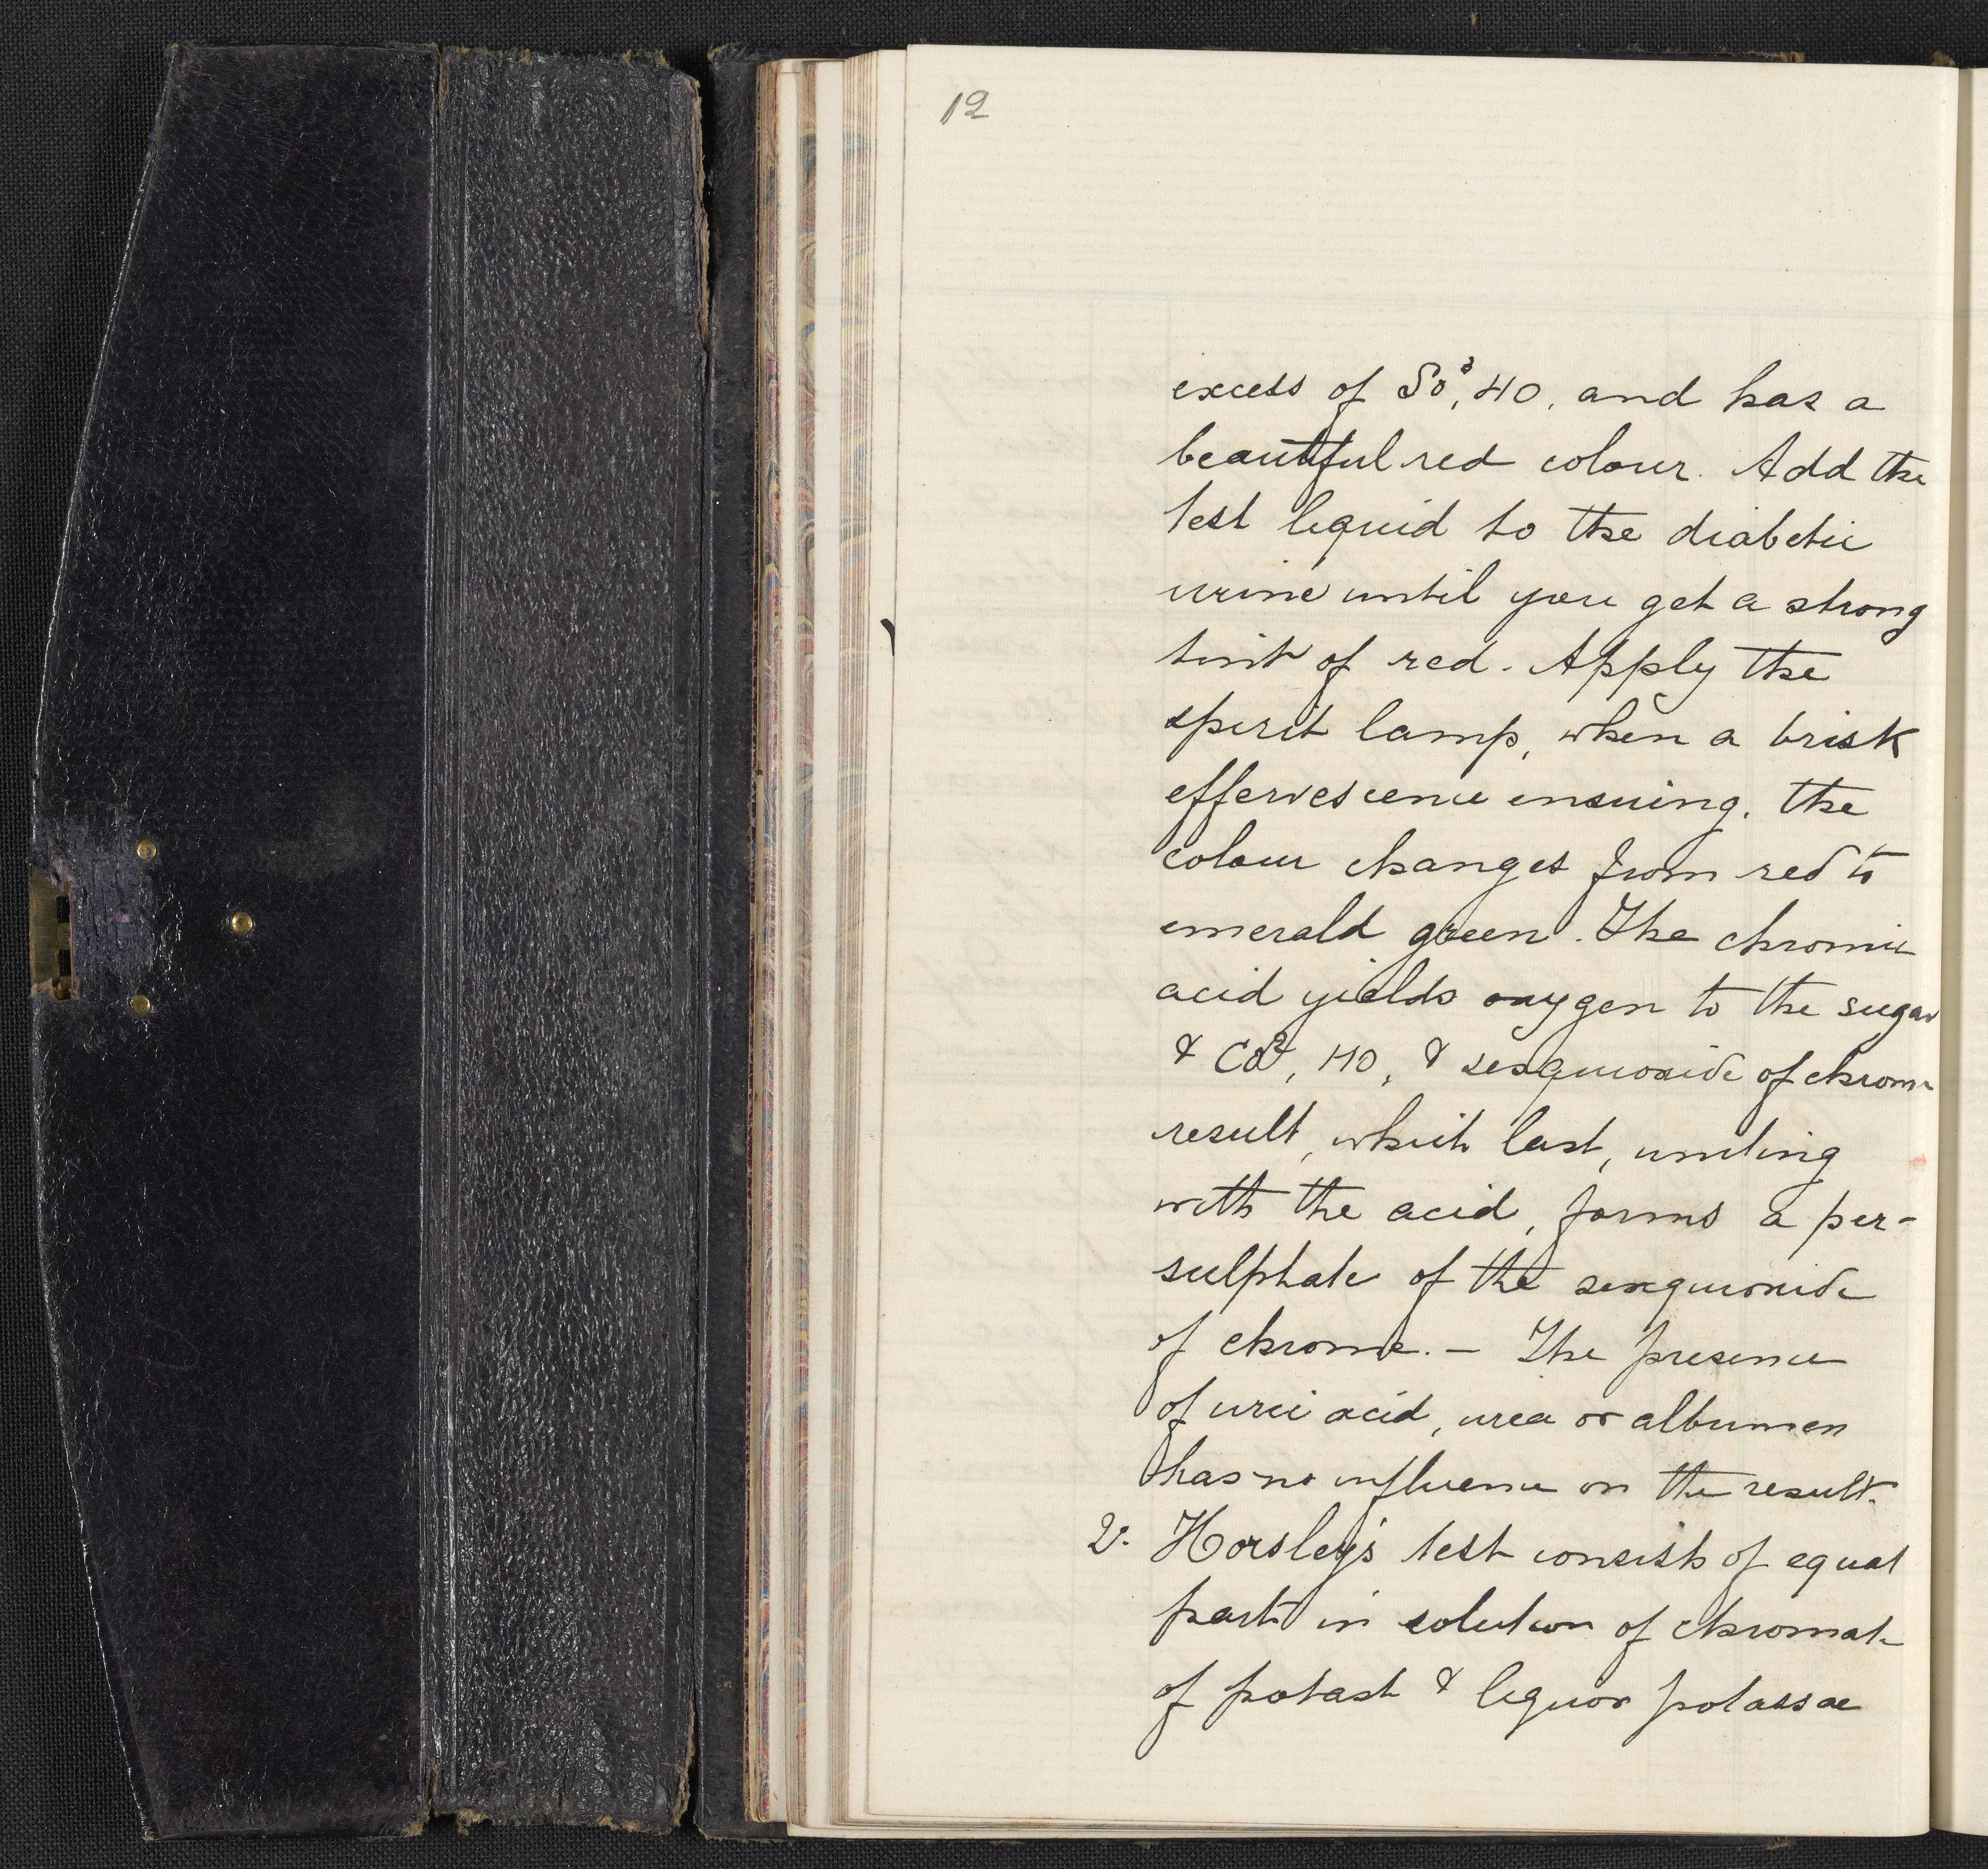 12
excess of So³, HO, and has a
beautiful red colour. Add the
test liquid to the diabetic
urine until you get a strong
tint of red. Apply the
spirit lamp, when a brisk
effervescence ensuing, the
colour changes from red to
emerald green. The chromic
acid yields oxygen to the sugar
& Co², HO, & sesquioxide of chrome
result, which last, uniting
with the acid, forms a per-
sulphate of the sesquioxide
of chrome. — The presence
of uric acid, urea or albumen
has no influence on the result.
V. Horsley's test consists of equal
parts in solution of chromate
of potash & liquor potassae